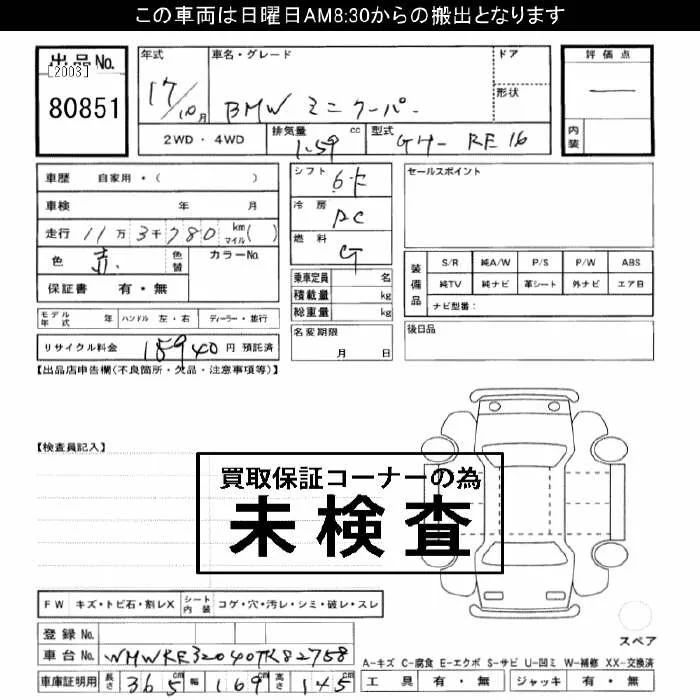 この車両は日曜日AM8:30からの搬出となります
出品No.
[2003]
80851
年式 車名・グレード ドア
17/10月 BMW ミニクーパー 形状
評価点
―
内装
2WD・4WD 排気量 1.59 cc 型式 GH- RE16
車歴 自家用・( )
車検 年 月
走行 11万 3千 780 km マイル ( )
色 赤. 色替 カラーNo.
保証書 有・無
モデル年式 年 ハンドル 左・右 ディーラー・並行
リサイクル料金 15940 円 預託済
シフト 6F
冷房 AC
燃料 G
乗車定員 名
積載量 kg
総重量 kg
名変期限
月 日
セールスポイント
装備品 S/R 純A/W P/S P/W ABS
純TV 純ナビ 革シート 外ナビ エア日
ナビ型番:
後日品
【出品店申告欄(不良箇所・欠品・注意事項等)】
【検査員記入】
買取保証コーナーの為
未検査
FW キズ・トビ石・割レX シート内装 コゲ・穴・汚レ・シミ・破レ・スレ
登録No.
車台No. WMWRE32040TK82758
車庫証明用 長さ 365cm 幅 169cm 高さ 145cm
スペア
A-キズ C-腐食 E-エクボ S-サビ U-凹ミ W-補修 XX-交換済
工具 有・無 ジャッキ 有・無